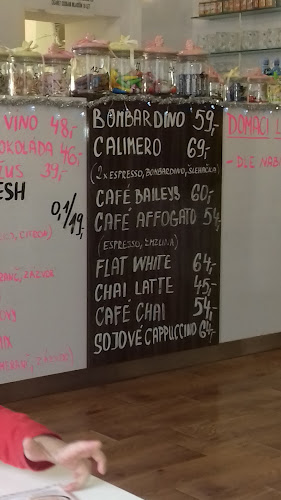 VÍNO 48,-
OKOLÁDA 46,-
39,-
ESH
0,1/19,-
BOMBARDINO 59,-
CALIMERO 69,-
(2x ESPRESSO, BOMBARDINO, ŠLEHAČKA)
CAFÉ BAILEYS 60,-
CAFÉ AFFOGATO 54,-
(ESPRESSO, ZMRZLINA)
FLAT WHITE 64,-
CHAI LATTE 45,-
CAFÉ CHAI 54,-
SOJOVÉ CAPPUCCINO 64,-
DOMÁCÍ L
- DLE NAB